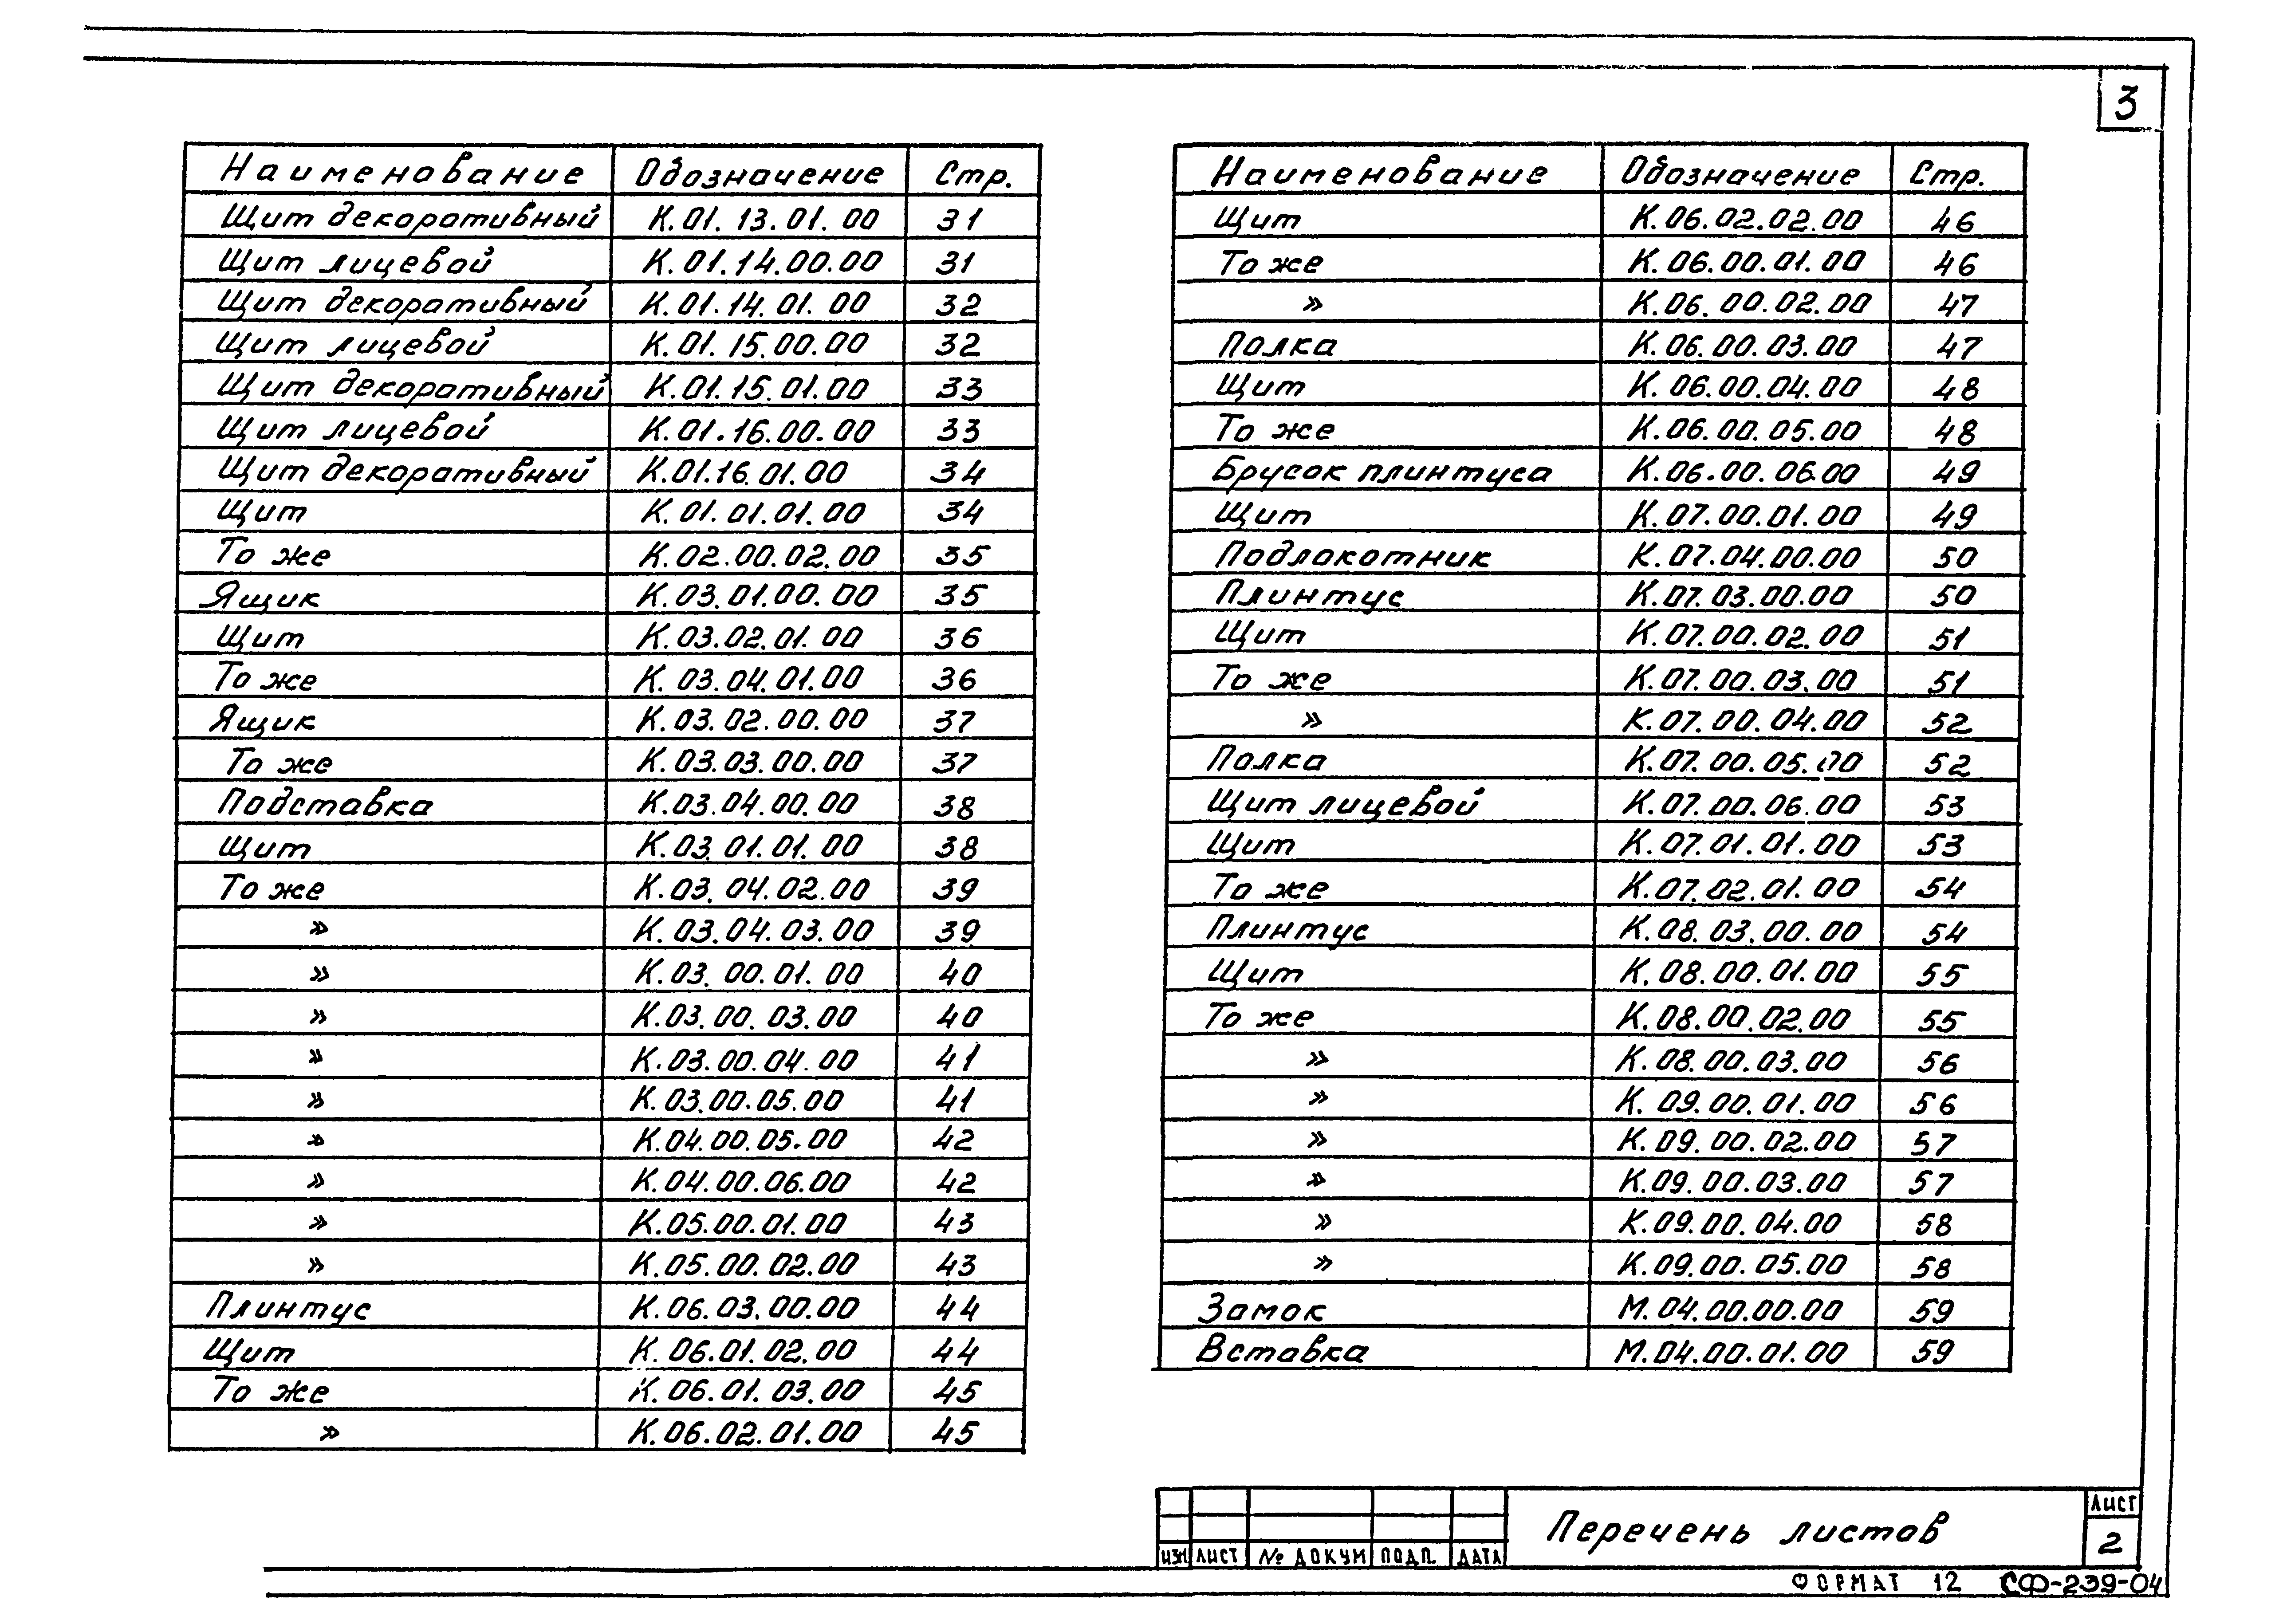 3
Наименование Обозначение Стр.
Щит декоративный К.01.13.01.00 31
Щит лицевой К.01.14.00.00 31
Щит декоративный К.01.14.01.00 32
Щит лицевой К.01.15.00.00 32
Щит декоративный К.01.15.01.00 33
Щит лицевой К.01.16.00.00 33
Щит декоративный К.01.16.01.00 34
Щит К.01.01.01.00 34
То же К.02.00.02.00 35
Ящик К.03.01.00.00 35
Щит К.03.02.01.00 36
То же К.03.04.01.00 36
Ящик К.03.02.00.00 37
То же К.03.03.00.00 37
Подставка К.03.04.00.00 38
Щит К.03.01.01.00 38
То же К.03.04.02.00 39
» К.03.04.03.00 39
» К.03.00.01.00 40
» К.03.00.03.00 40
» К.03.00.04.00 41
» К.03.00.05.00 41
» К.04.00.05.00 42
» К.04.00.06.00 42
» К.05.00.01.00 43
» К.05.00.02.00 43
Плинтус К.06.03.00.00 44
Щит К.06.01.02.00 44
То же К.06.01.03.00 45
» К.06.02.01.00 45
Наименование Обозначение Стр.
Щит К.06.02.02.00 46
То же К.06.00.01.00 46
» К.06.00.02.00 47
Полка К.06.00.03.00 47
Щит К.06.00.04.00 48
То же К.06.00.05.00 48
Брусок плинтуса К.06.00.06.00 49
Щит К.07.00.01.00 49
Подлокотник К.07.04.00.00 50
Плинтус К.07.03.00.00 50
Щит К.07.00.02.00 51
То же К.07.00.03.00 51
» К.07.00.04.00 52
Полка К.07.00.05.00 52
Щит лицевой К.07.00.06.00 53
Щит К.07.01.01.00 53
То же К.07.02.01.00 54
Плинтус К.08.03.00.00 54
Щит К.08.00.01.00 55
То же К.08.00.02.00 55
» К.08.00.03.00 56
» К.09.00.01.00 56
» К.09.00.02.00 57
» К.09.00.03.00 57
» К.09.00.04.00 58
» К.09.00.05.00 58
Замок М.04.00.00.00 59
Вставка М.04.00.01.00 59
ИЗМ ЛИСТ № ДОКУМ ПОДП. ДАТА
Перечень листов
ЛИСТ
2
ФОРМАТ 12 СФ-239-04